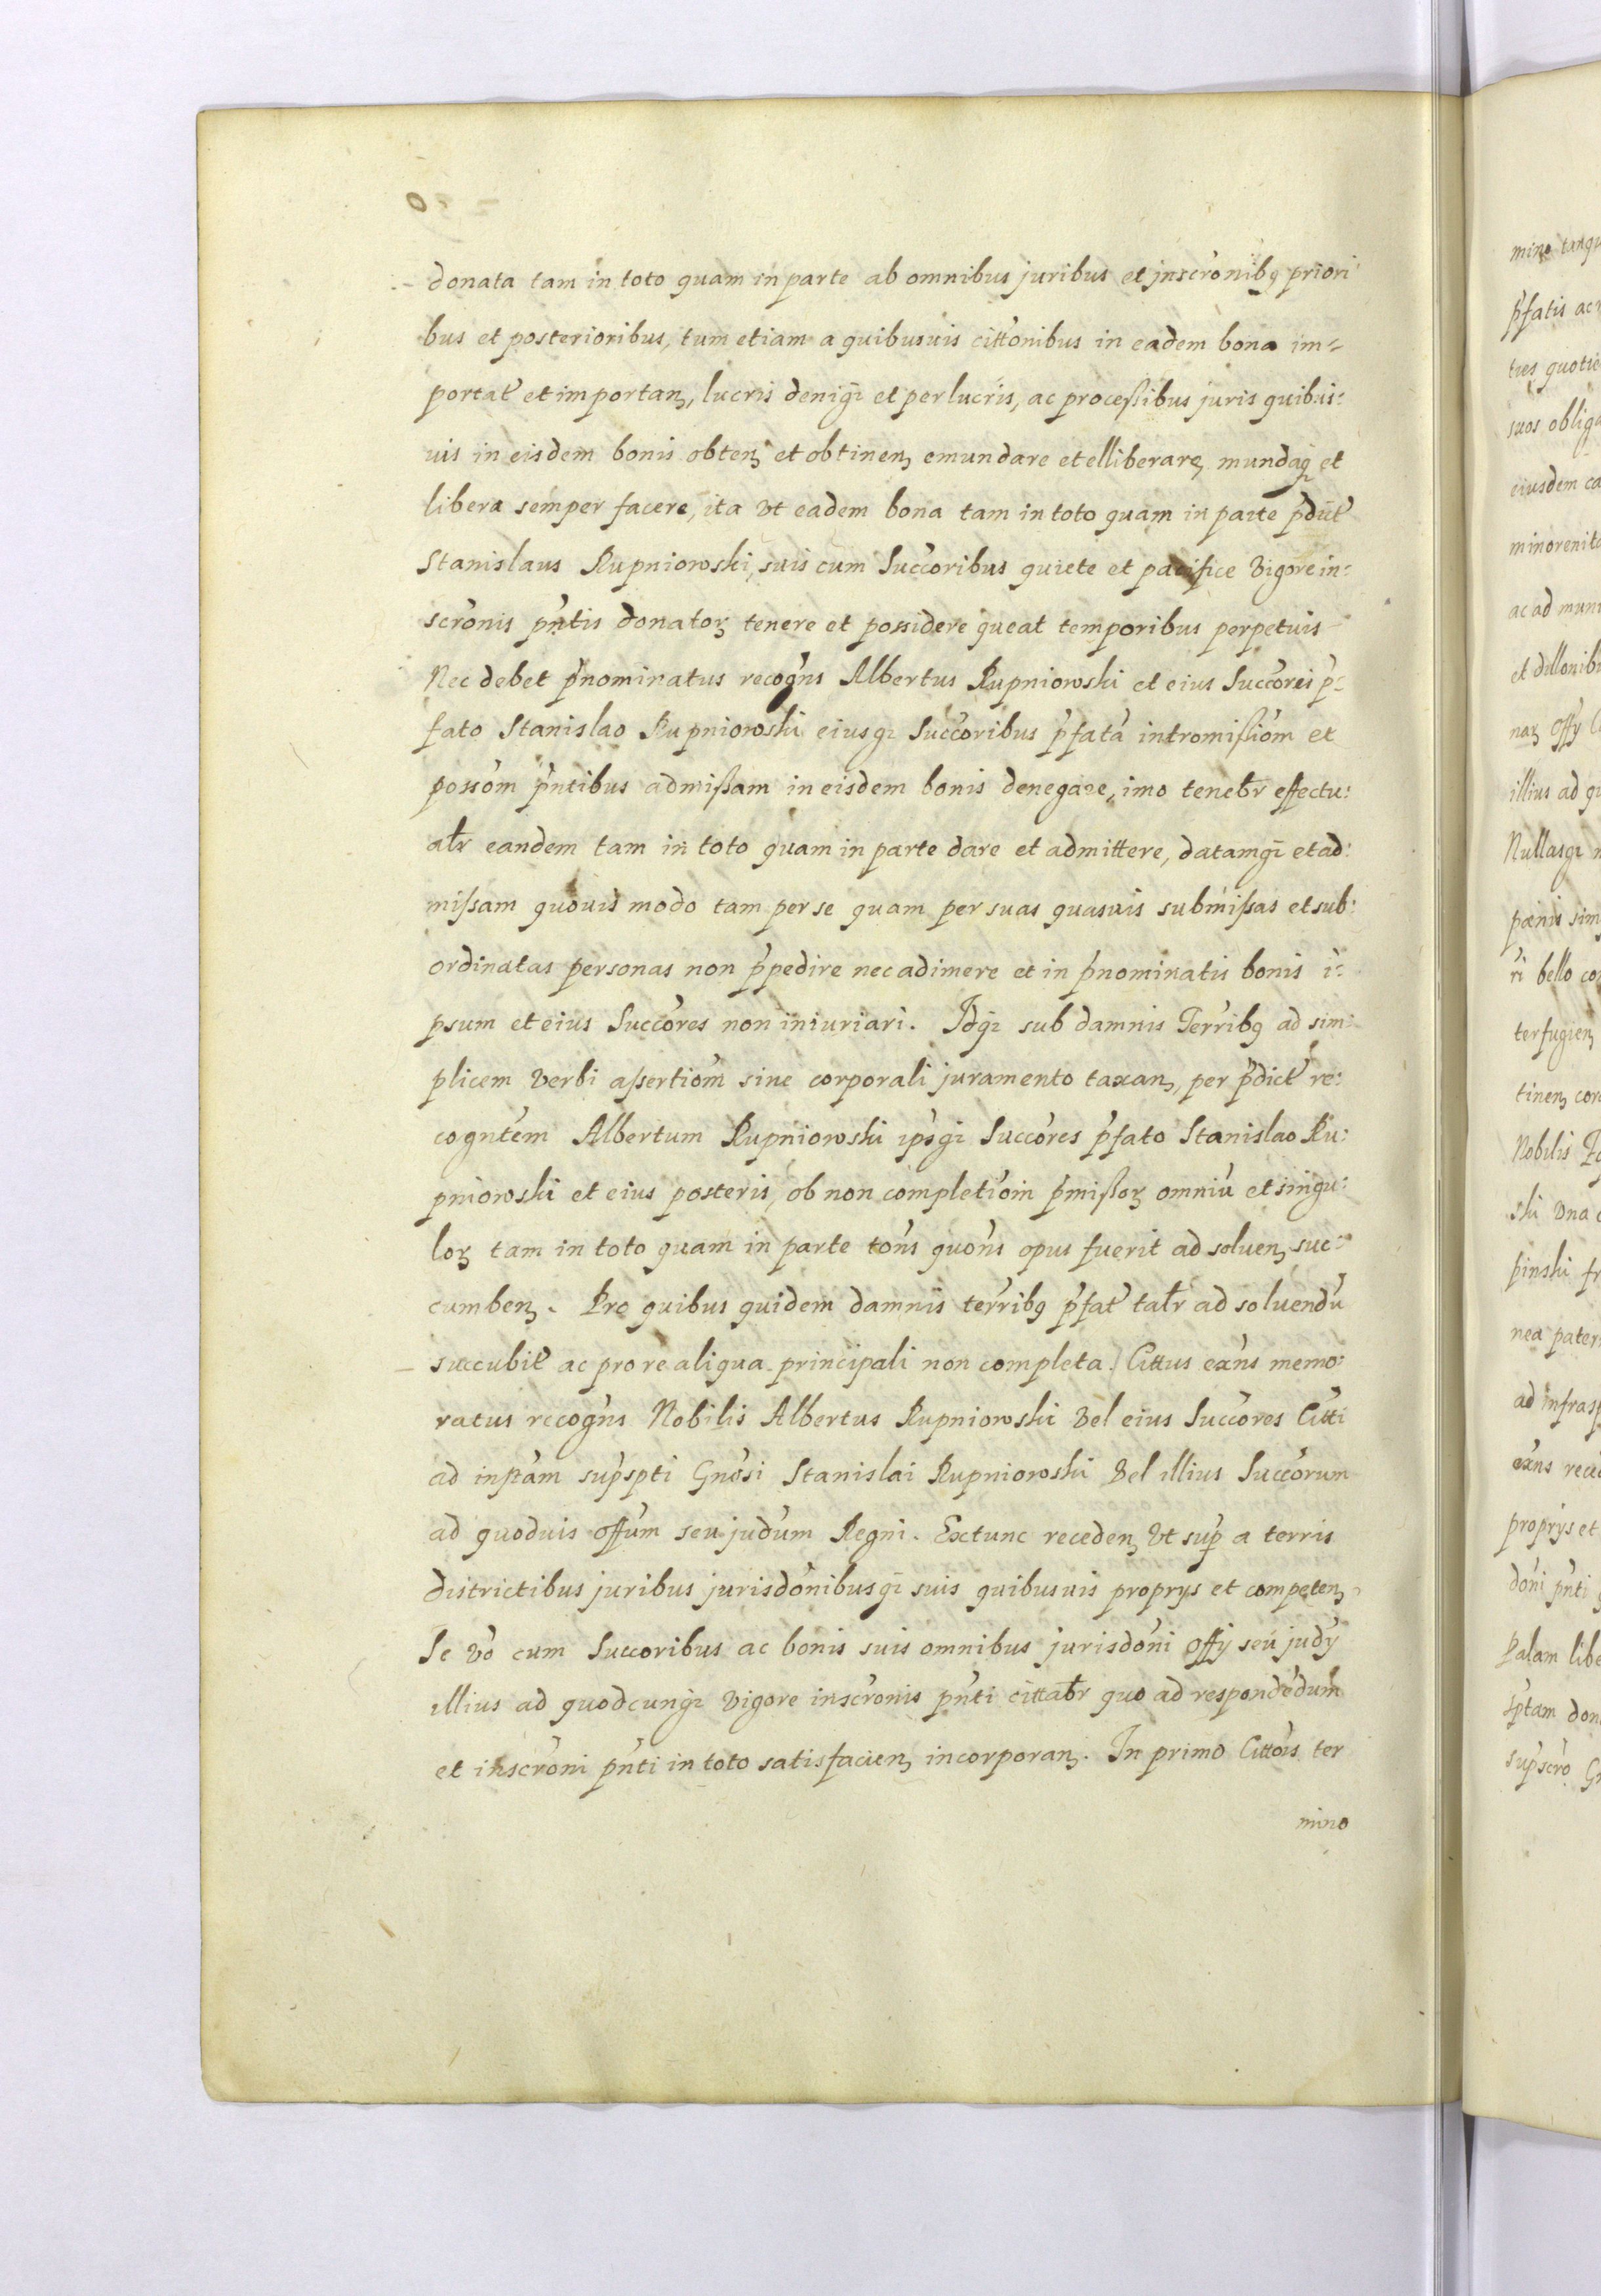 donata tam in toto quam in parte ab omnibus juribus et jnscronibꝫ priori
bus et posterioribus, tum etiam a quibusuis cittonibus in eadem bona im=
portat et importanꝫ, lucris deniqꝫ et perlucris, ac processibus juris quibus:
uis in eisdem bonis obtenꝫ et obtinenꝫ emundare et elliberare, mundaqꝫ et
libera semper facere, ita vt eadem bona tam in toto quam in parte pdict
Stanislaus Rupniowski, suis cum Succoribus quiete et pacifice vigore in:
scronis pntis donatorꝫ tenere et possidere queat temporibus perpetuis
Nec debet pnominatus recogns Albertus Rupniowski et eius Succores p=
fato Stanislao Rupniowski eiusqꝫ Succoribus pfatā intromissiom et
possom pntibus admissam in eisdem bonis denegare, imo tenebr effectu:
alr eandem tam in toto quam in parte dare et admittere, datamqꝫ et ad:
missam quouis modo tam per se quam per suas quasuis submissas et sub:
ordinatas personas non ppedire nec adimere et in pnominatis bonis i=
psum et eius Succores non iniuriari. Idqꝫ sub damnis Terribꝫ ad sim:
plicem verbi assertiom sine corporali juramento taxanꝫ, per pdict re:
cogntem Albertum Rupniowski ipsqꝫ Succores pfato Stanislao Ru:
pniowski et eius posteris, ob non completiom pmissorꝫ omniū et singu:
lorꝫ tam in toto quam in parte tons quons opus fuerit ad soluenꝫ suc:
cumbenꝫ. Pro quibus quidem damnis terribꝫ pfat talr ad soluendū
succubit ac pro re aliqua principali non completa. Cittus exns memo:
ratus recogns Nobilis Albertus Rupniowski vel eius Succores Citti
ad instam supspti Gnosi Stanislai Rupniowski vel illius Succorum
ad quoduis offum seu judum Regni. Extunc recedenꝫ vt sup a terris
districtibus juribus jurisdonibusqꝫ suis quibusuis proprys et competenꝫ
Se vo cum Succoribus ac bonis suis omnibus jurisdoni offy seu judy
illius ad quodcunqꝫ vigore inscronis pnti cittabr quo ad respondēdum
et inscroni pnti in toto satisfacienꝫ incorporanꝫ. In primo Cittois ter
mino